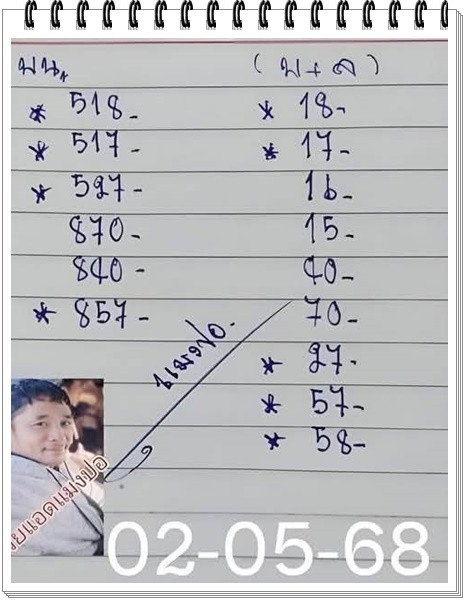 บน (บ+ล)
* 518- * 18-
* 517- * 17-
* 527- 16-
870- 15-
840- 40-
* 857- 70-
* 27-
แมงปอ.
* 57-
* 58-
ยแอดแมงปอ
02-05-68